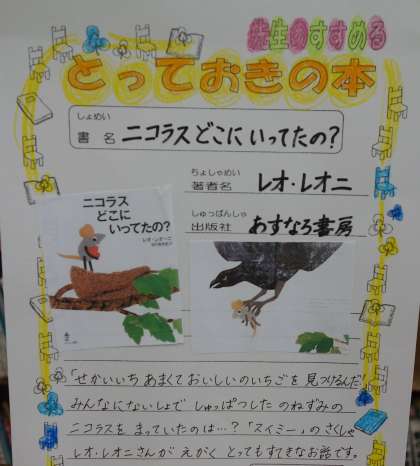 先生のすすめる
とっておきの本
しょめい
書名 ニコラスどこにいってたの？
ちょしゃめい
著者名 レオ・レオニ
しゅっぱんしゃ
出版社 あすなろ書房
ニコラス
どこに
いってたの？
レオ・レオーニ
「せかいいち あまくておいしいのいちごを 見つけるんだ！
みんなにないしょで しゅっぱつした のねずみの
ニコラスを まっていたのは…？「スイミー」の さくしゃ
レオ・レオニさんが えがく とってもすてきなお話です。